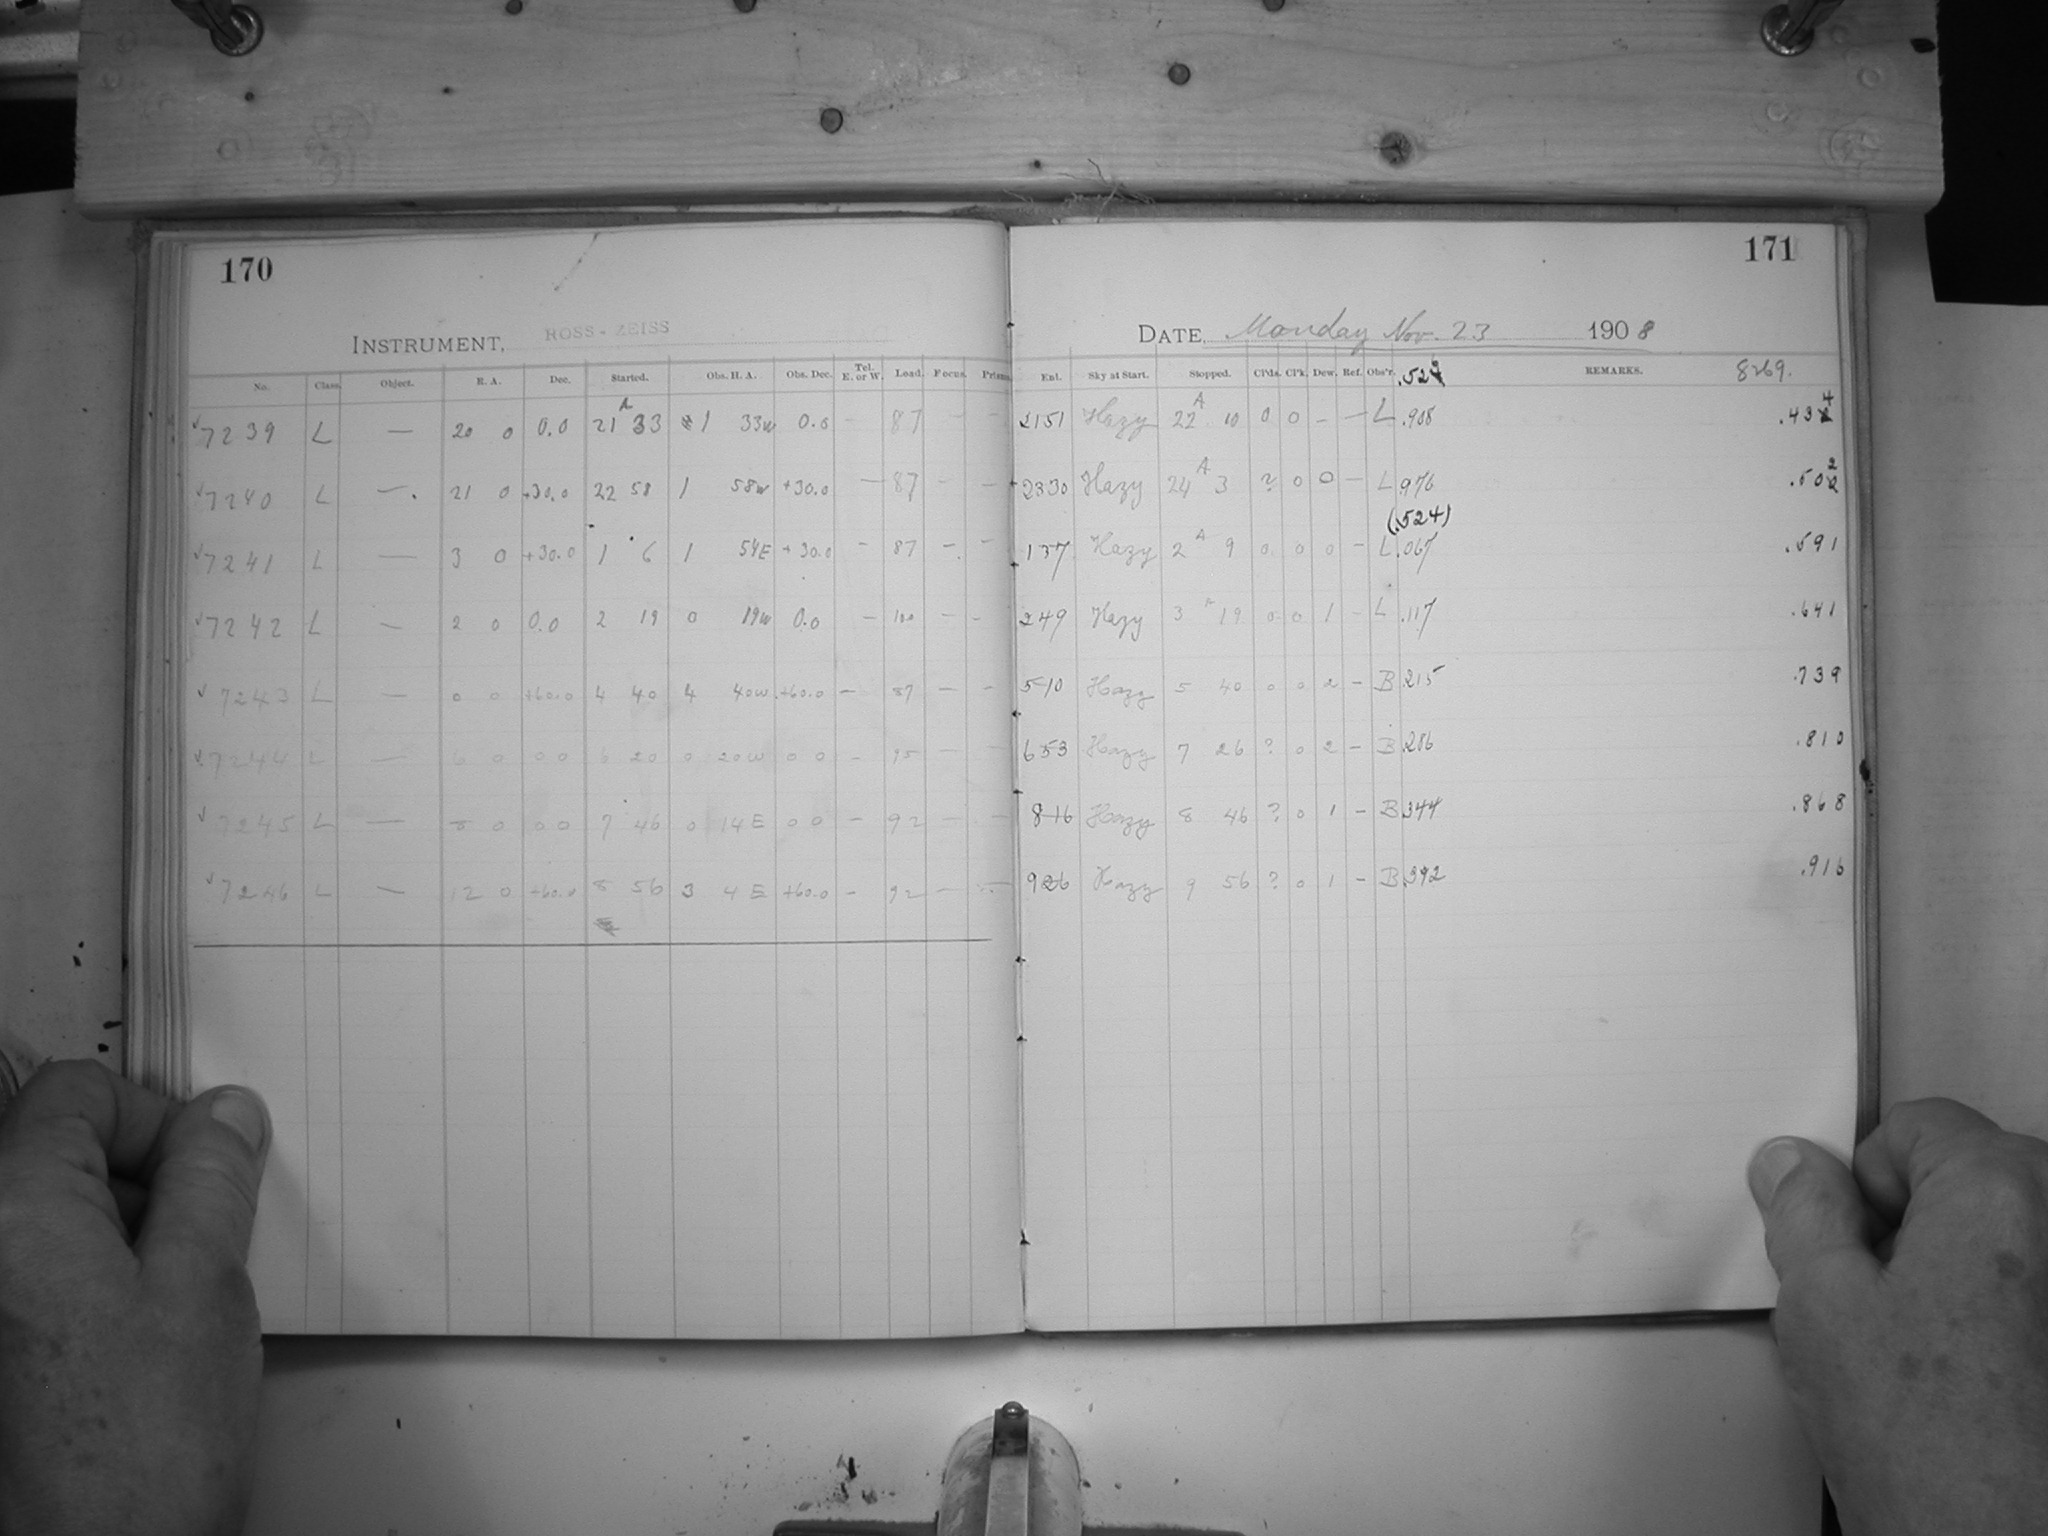 170
171
INSTRUMENT, ROSS-ZEISS
DATE, Monday Nov. 23 1908
No. Class. Object. R. A. Dec. Started. Obs. H. A. Obs. Dec. Tel. E. or W. Load. Focus. Prisms. Ext. Sky at Start. Stopped. Cl'ds. Cl'k. Dew. Ref. Obs'r. REMARKS. 8269.
7239 L — 20 0 0.0 21 A 33 1 33w 0.0 — 87 — — 2151 Hazy 22 A 10 0 0 — — L .908 .434
7240 L — 21 0 +30.0 22 58 1 58w +30.0 — 87 — — 2330 Hazy 24 A 3 ? 0 0 — L .976 .502
(.524)
7241 L — 3 0 +30.0 1 6 1 54E +30.0 — 87 — — 137 Hazy 2 A 9 0 0 0 — L .067 .591
7242 L — 2 0 0.0 2 19 0 19w 0.0 — 100 — — 249 Hazy 3 A 19 0 0 1 — L .117 .641
7243 L — 0 0 +60.0 4 40 4 40w +60.0 — 87 — — 510 Hazy 5 40 0 0 2 — B .215 .739
7244 L — 6 0 0 0 6 20 0 20w 0 0 — 95 — — 653 Hazy 7 26 ? 0 2 — B .286 .810
7245 L — 8 0 0 0 7 46 0 14E 0 0 — 92 — — 816 Hazy 8 46 ? 0 1 — B .344 .868
7246 L — 12 0 +60.0 8 56 3 4E +60.0 — 92 — — 926 Hazy 9 56 ? 0 1 — B .392 .916